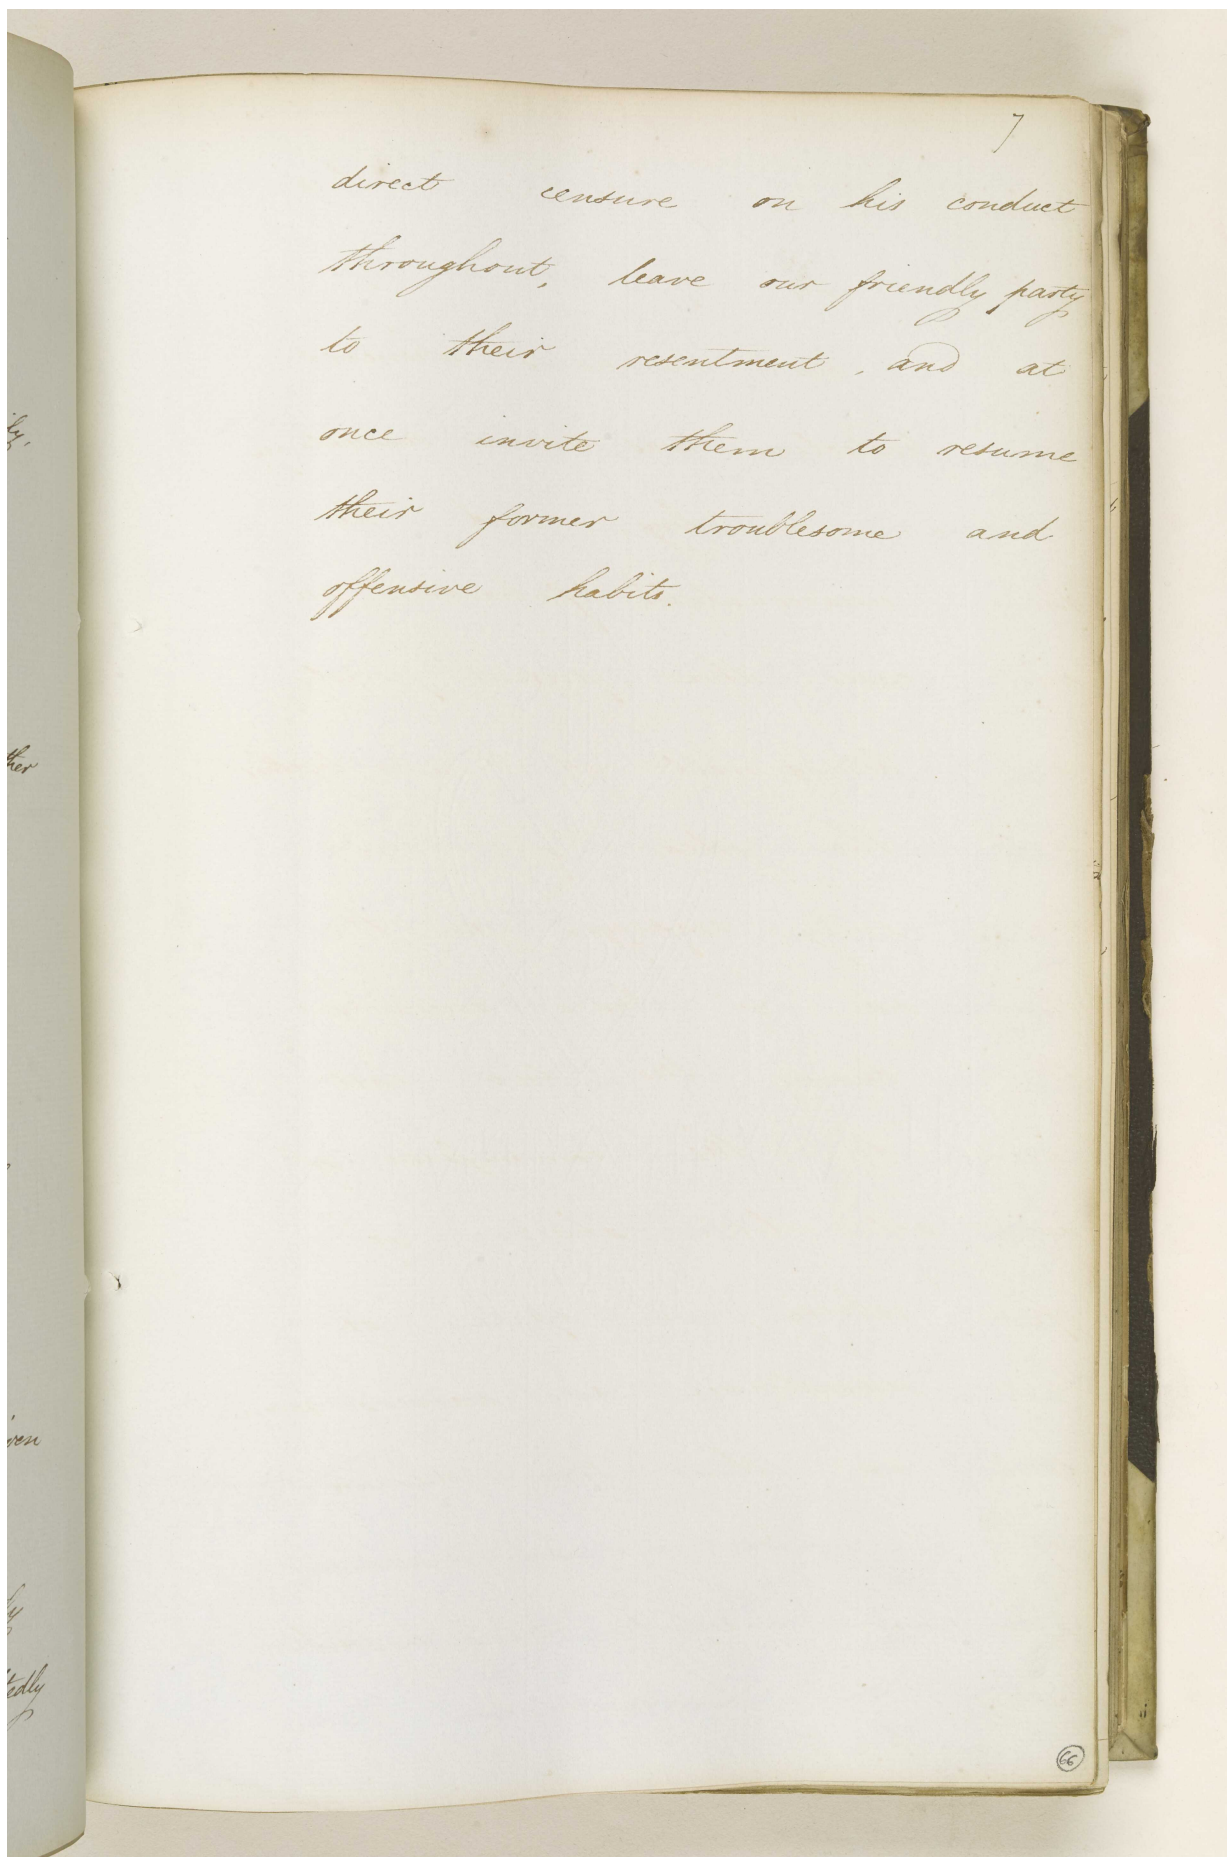 7
direct censure on his conduct
throughout, leave our friendly party
to their resentment, and at
once invite them to resume
their former troublesome and
offensive habits.
ther
tedly
66